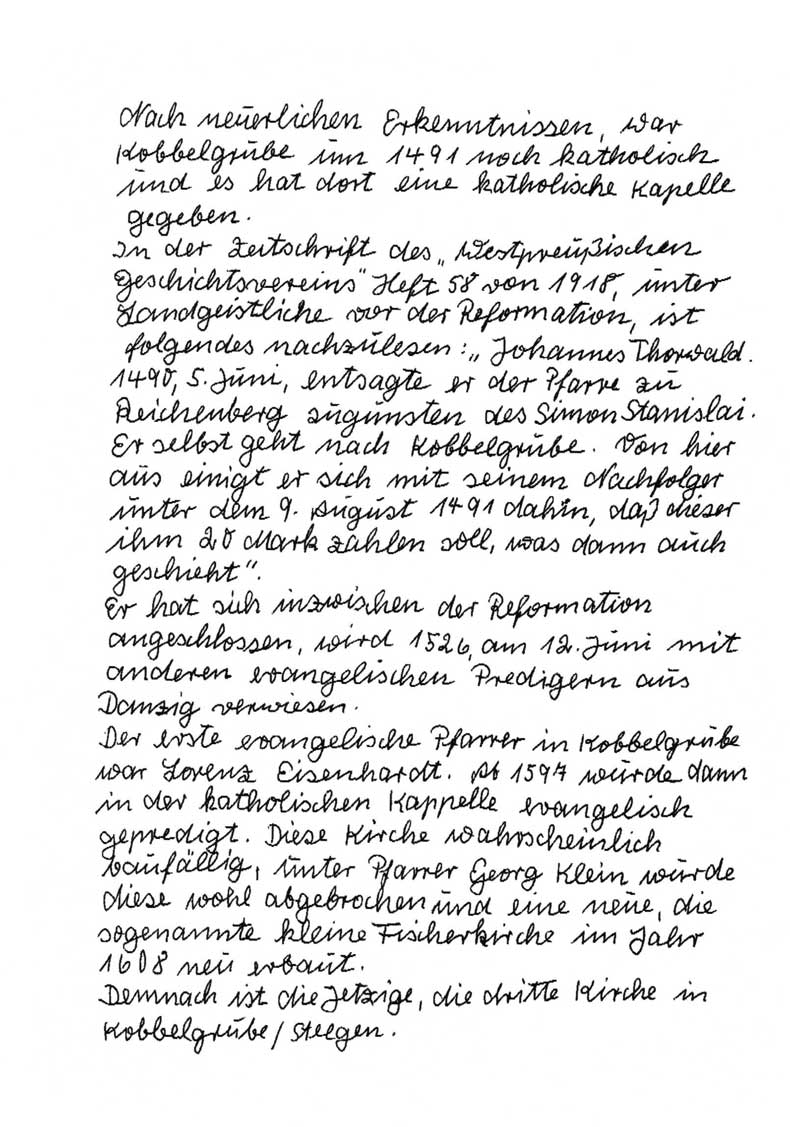 Nach neuerlichen Erkenntnissen, war
Kobbelgrube um 1491 noch katholisch
und es hat dort eine katholische Kapelle
gegeben.
In der Zeitschrift des „Westpreußischen
Geschichtsvereins" Heft 58 von 1918, unter
Landgeistliche vor der Reformation, ist
folgendes nachzulesen: „Johannes Thorwald.
1490, 5. Juni, entsagte er der Pfarre zu
Reichenberg zugunsten des Simon Stanislai.
Er selbst geht nach Kobbelgrube. Von hier
aus einigt er sich mit seinem Nachfolger
unter dem 9. August 1491 dahin, daß dieser
ihm 20 Mark zahlen soll, was dann auch
geschieht".
Er hat sich inzwischen der Reformation
angeschlossen, wird 1526, am 12. Juni mit
anderen evangelischen Predigern aus
Danzig verwiesen.
Der erste evangelische Pfarrer in Kobbelgrube
war Lorenz Eisenhardt. Ab 1597 wurde dann
in der katholischen Kappelle evangelisch
gepredigt. Diese Kirche wahrscheinlich
baufällig, unter Pfarrer Georg Klein wurde
diese wohl abgebrochen und eine neue, die
sogenannte kleine Fischerkirche im Jahr
1608 neu erbaut.
Demnach ist die Jetzige, die dritte Kirche in
Kobbelgrube/Steegen.